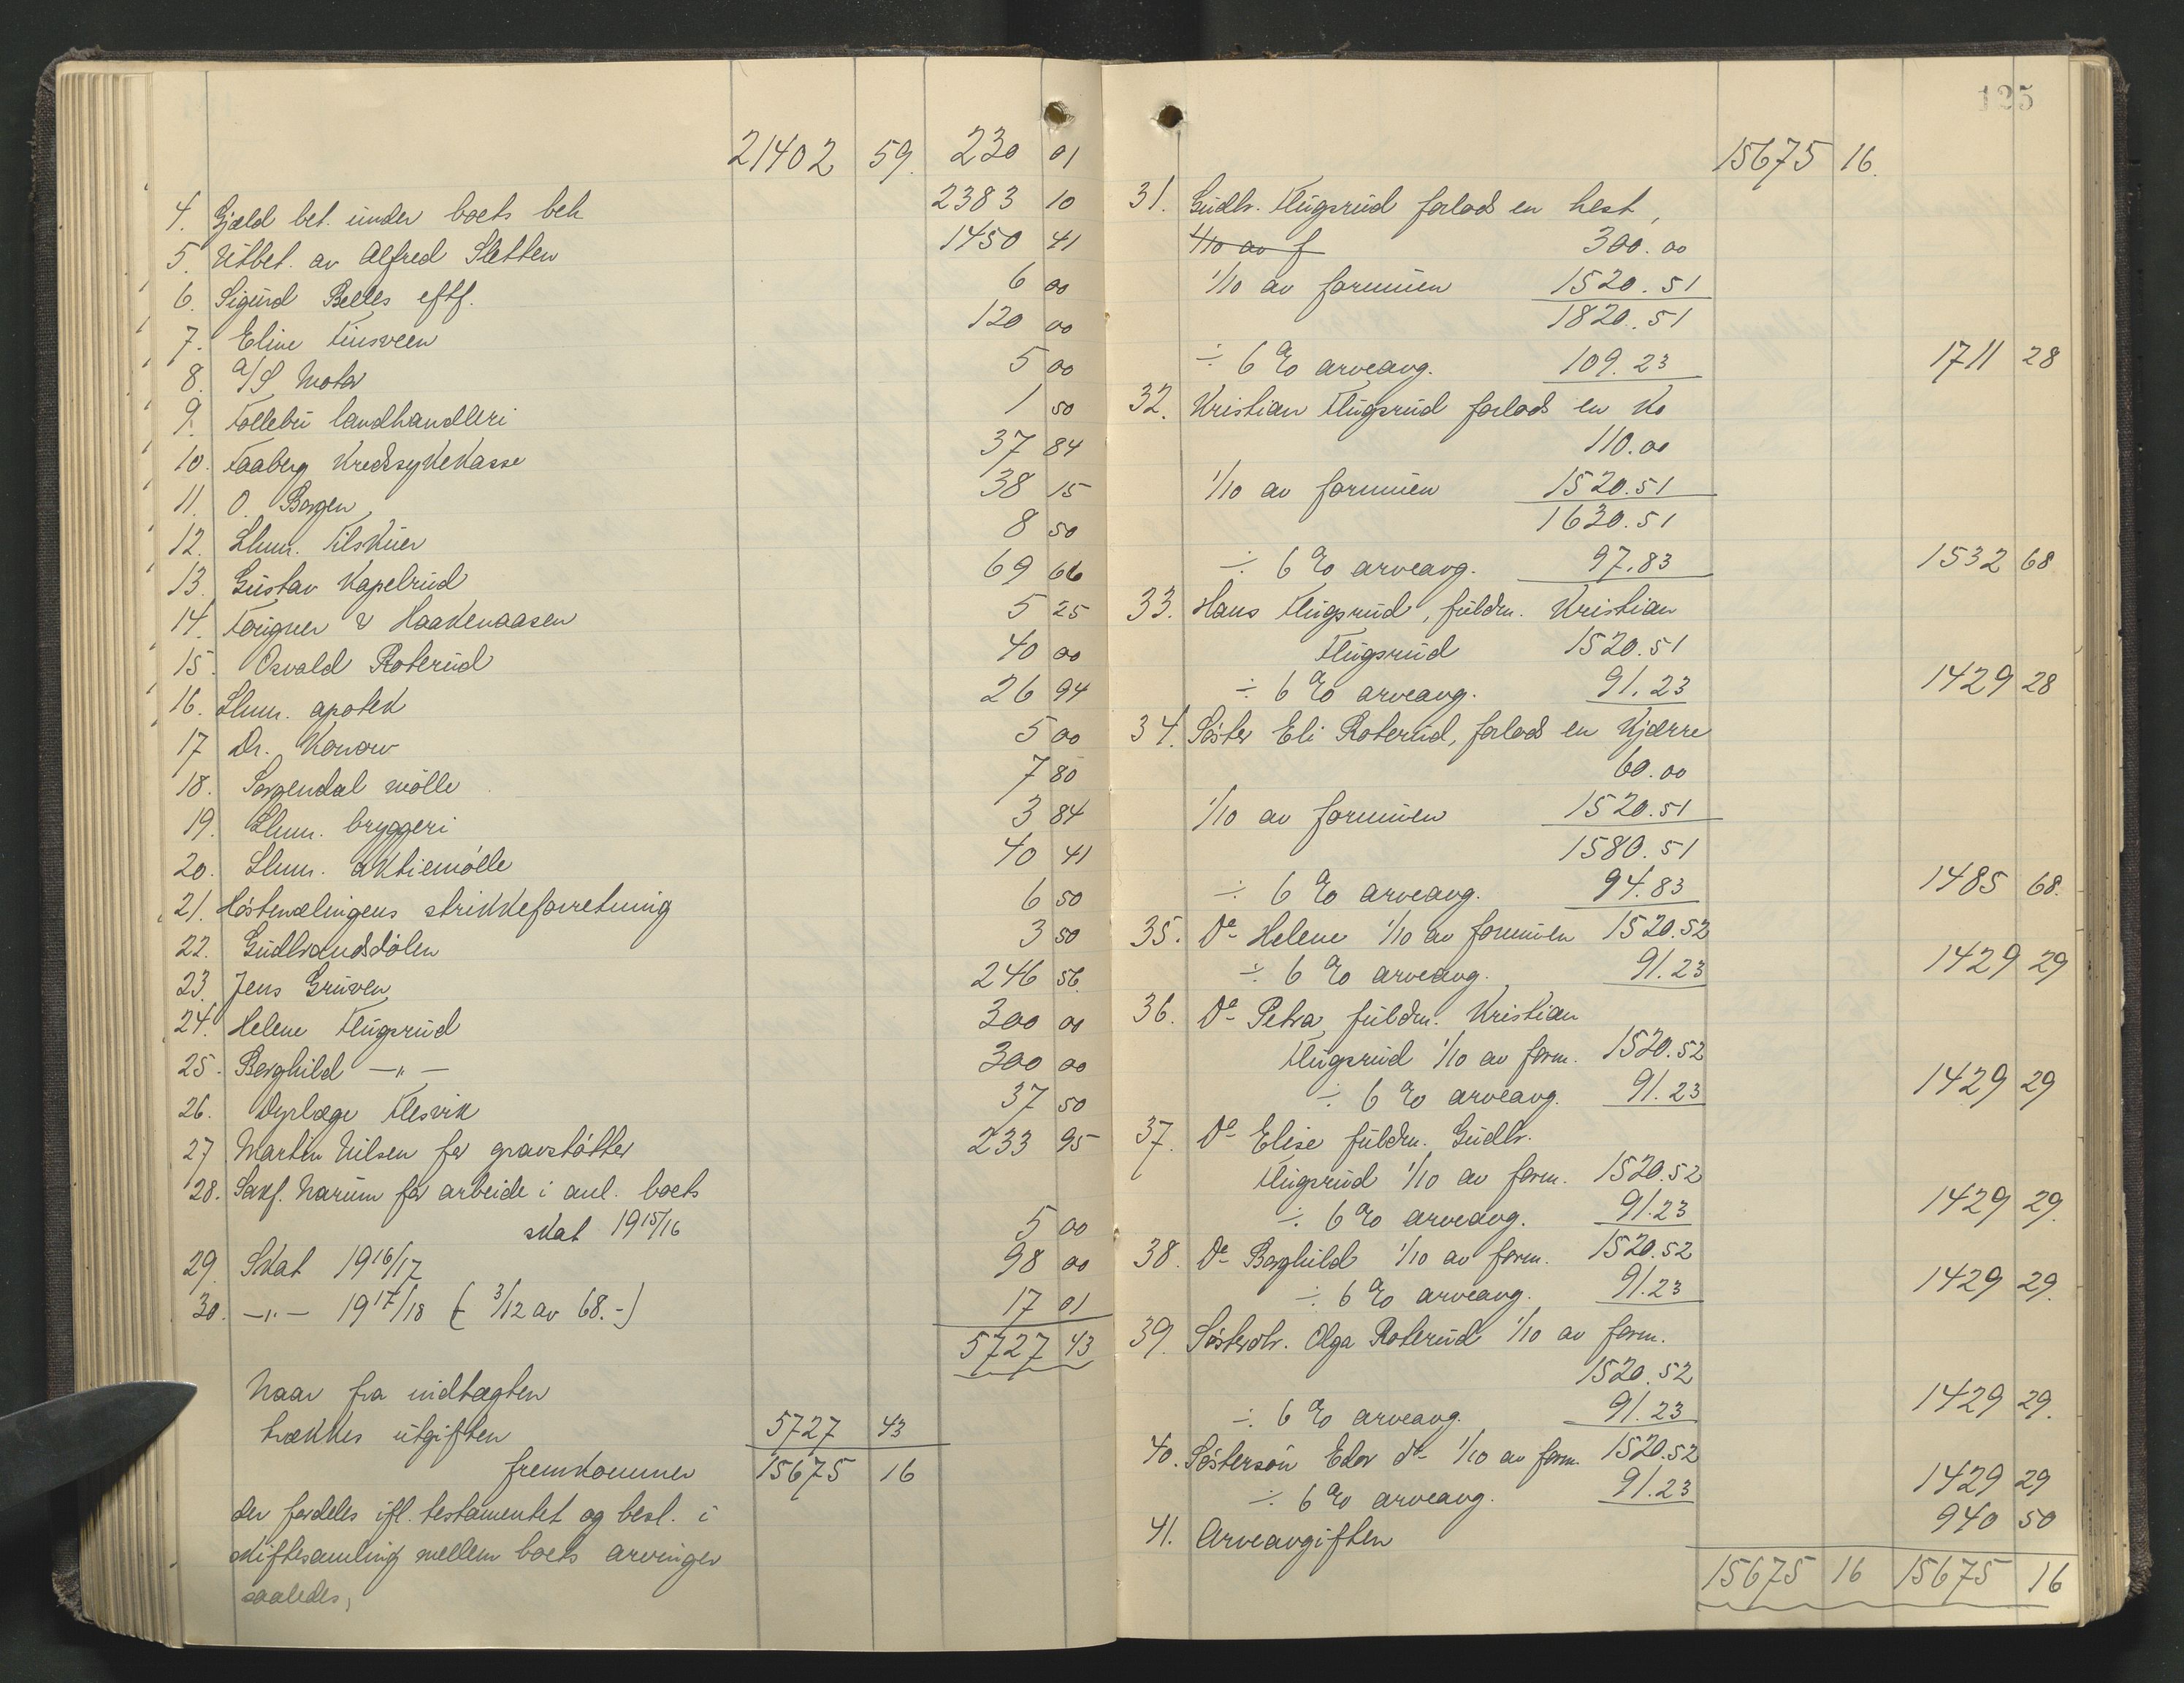 21402 59. 230 01
4. Gjæld bet. under boets beh 2383 10
5. Utbet. av Alfred Sletten 1450 41
6. Sigurd Belles eftf. 6 00
7. Eline Finsveen 120 00
8. A/S Motor 5 00
9. Follebu landhandleri 1 50
10. Faaberg Kredssykekasse 37 84
11. O. Borgen 38 15
12. Lhmr. Tilskuer 8 50
13. Gustav Kapelrud 69 66
14. Forigner & Haakenaasen 5 25
15. Osvald Roterud 40 00
16. Lhmr. apotek 26 94
17 Dr. Konow 5 00
18. Sorgendal mølle 7 80
19. Lhmr. bryggeri 3 84
20. Lhmr. aktiemølle 40 41
21. Høstmælingens strikkeforretning 6 50
22. Gudbrandsdølen 3 50
23. Jens Gruven 246 56
24. Helene Flugsrud 300 00
25. Borghild —"— 300 00
26. Dyrlæge Flesvik 37 50
27 Martin Nilsen for gravstøtter 233 95
28. Sakf. Narum for arbeide i anl. boets
skat 1915/16 5 00
29. Skat 1916/17 98 00
30. —"— 1917/18 (3/12 av 68.-) 17 01
5727 43
Naar fra indtægten
trækkes utgiften 5727 43
fremkommer 15675 16
der fordeles ifl. testamentet og besl. i
skiftesamling mellem boets arvinger
saaledes,
125
15675 16.
31. Gudbr. Flugsrud forlods en hest,
1/10 av f 300.00
1/10 av formuen 1520.51
1820.51
÷ 6 % arveavg. 109.23 1711 28
32. Kristian Flugsrud forlods en ko
110.00
1/10 av formuen 1520.51
1630.51
÷ 6 % arveavg. 97.83 1532 68
33. Hans Flugsrud, fuldm. Kristian
Flugsrud 1520.51
÷ 6 % arveavg. 91.23 1429 28
34. Søster Eli Roterud, forlods en kjærre
60.00
1/10 av formuen 1520.51
1580.51
÷ 6 % arveavg. 94.83 1485 68.
35. Do Helene 1/10 av formuen 1520.52
÷ 6 % arveavg. 91.23 1429 29
36. Do Petra, fuldm. Kristian
Flugsrud 1/10 av form. 1520.52
÷ 6 % arveavg. 91.23 1429 29
37. Do Elise fuldm. Gudbr.
Flugsrud 1/10 av form. 1520.52
÷ 6 % arveavg. 91.23 1429 29.
38. Do Borghild 1/10 av form. 1520.52
÷ 6 % arveavg. 91.23 1429 29.
39. Søsterdtr. Olga Roterud 1/10 av form.
1520.52
÷ 6 % arveavg. 91.23 1429 29.
40. Søstersøn Edv do 1/10 av form. 1520.52
÷ 6 % arveavg. 91.23 1429 29
41. Arveavgiften 940 50
15675 16 15675 16